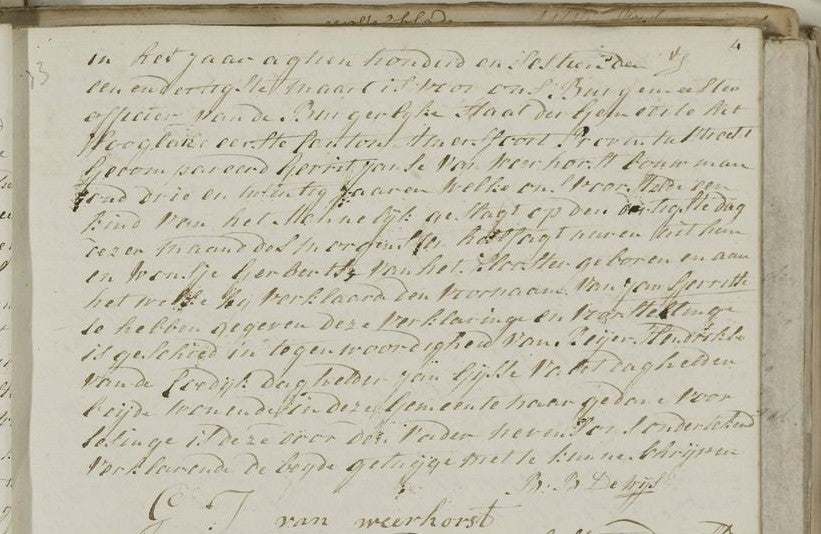 4
in het jaar aghen honderd en Sestien den
een en dertigste maart is voor ons Burgemeester
officier van de Burgerlyke Staat der Gemeente het
Hooglant eerste Canton Amersfoort Provintie Utregt
Gecompareerd Gerrit Janse van weerhorst bouwman
oud drie en twintig jaaren welke ons voorstelde een
kind van het Mannelijk geslagt op den dertigste dag
dezer maand des morgens ten uuren uit hem
en Gerberts van het Klooster geboren en aan
het welke hij verklaarde den voornaam van Jan Gerritse
te hebben gegeven deze verklaringe en voorstellinge
is geschied in tegenwoordigheid van Reijer Hendrikse
van de daghelder Jan Gijsse daghelder
beijde wonende in deze Gemeente naar gedane voor
lesinge is deze door den vader nevens ons onderteekend
verklarende de beyde getuijge niet te kunne schrijven
B. B De Wijs
G J van weerhorst